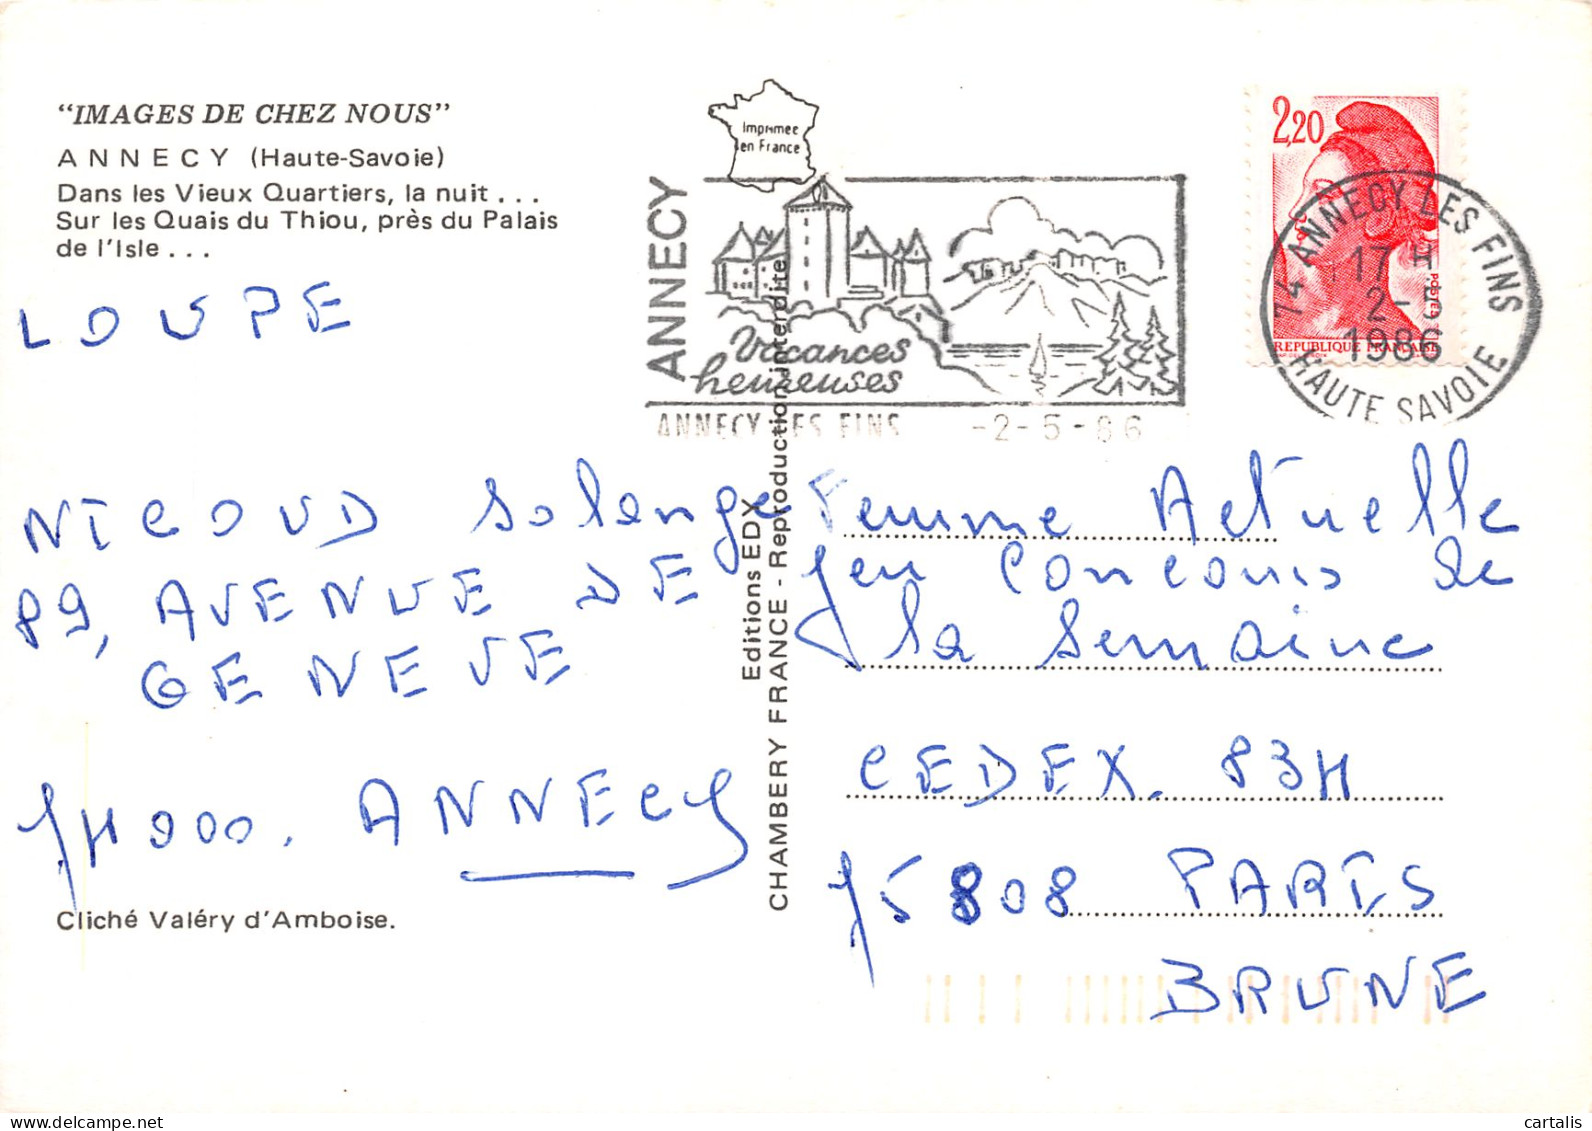 "IMAGES DE CHEZ NOUS"
ANNECY (Haute-Savoie)
Dans les Vieux Quartiers, la nuit . . .
Sur les Quais du Thiou, près du Palais
de l'Isle . . .
LOUPE
NICOUD Solange
89, AVENUE DE
GENEVE
74000. ANNECY
Cliché Valéry d'Amboise.
Editions EDY
CHAMBERY FRANCE - Reproduction interdite
Imprimée
en France
ANNECY
Vacances
heureuses
ANNECY LES FINS -2-5-86
2,20
POSTES
REPUBLIQUE FRANÇAISE
74 ANNECY LES FINS
17 H
2-5
1986
HAUTE SAVOIE
Femme Actuelle
Jeu Concours de
la Semaine
CEDEX. 83H
75808 PARIS
BRUNE
cartalis